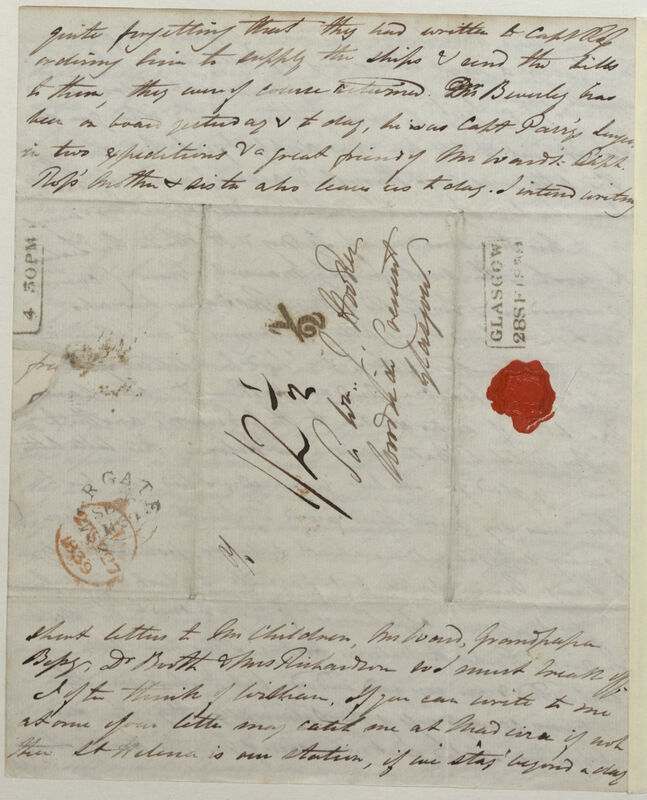 quite forgetting that they had written to Capt Ross
ordering him to supply the ships & send the bills
to them, they were of course returned. Mr Beverley has
been on board yesterday & to day, he was Capt Parry's Surgeon
in two expeditions & a great friend of Mr Ward's. Capt.
Ross' Mother & sister also leave us to day. I intend writing
4 30PM
GLASGOW
28 SE 1839
1/2
1/2 1/2
Sir Wm. J. Hooker
Woodside Crescent
Glasgow.
RGATE
27 SE 27
1839
short letters to Mr Children, Mr Ward, Grandpapa
Bessy, Dr Booth & Mrs Richardson so I must break off
I often think of William. If you can write to me
at once your letter may catch me at Madeira if not
then St Helena is our station, if we stay beyond a day